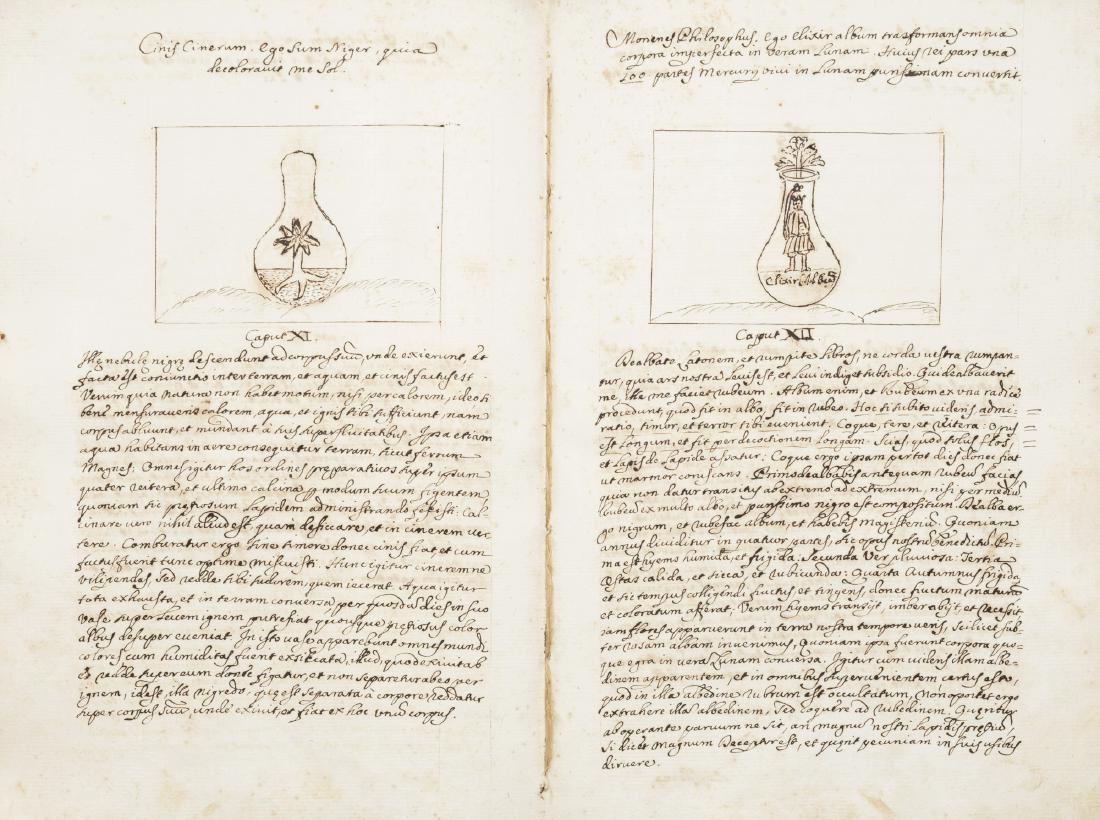 Cinis Cinerum. Ego Sum Niger, quia
decoloravit me Sol.
Caput XI.
Illę nebulę nigrę descendunt ad corpus suũ, unde exierunt, et
facta est coniunctio inter terram, et aquam, et cinis factus est.
Verum quia natura non habet motum, nisi per calorem, ideo si
bene mensuraveris calorem, aqua, et ignis tibi sufficiunt, nam
corpus abluunt, et mundant à suis superfluitatibus. Ipsa etiam
aqua habitans in aere consequitur terram, sicut ferrum
Magnes. Omnes igitur hos ordines pręparativos super ipsum
quater reitera, et ultimo calcina p modum suum
quoniam sic prętiosum Lapidem administrando Cal-
cinare vero nihil aliud est, quam desiccare, et in cinerem ver
tere. Comburatur ergo sine timore donec cinis fiat et cum
factus fuerit tunc optime miscuisti. Hunc igitur cinerem ne
vilipendas, sed redde sibi sudorem, quem iecerat. Aqua igitur
tota exhausta, et in terram conversa, per quosdã dies in suo
vase super levem ignem putrefiat quousque prętiosus color
albus desuper eveniat. In isto vase apparebunt omnes mundi
colores cum humiditas fuerit exsiccata, illud, quod exivit ab
eo redde super eum donec figatur, et non separetur ab eo per
ignem, idest, illa nigredo, quę est separata à corpore, reddatur
super corpus suũ, unde exivit, et fiat ex hoc unũ corpus.
Morienes Philosophus. Ego Elixir album trasformans omnia
corpora imperfecta in veram Lunam. Huius rei pars una
100. partes Mercurij vivi in Lunam purissimam convertit.
Elixir Albus
Caput XII.
Dealbate Latonem, et rumpite libros, ne corda vestra rumpan-
tur, quia ars nostra Levis est, et Levi indiget subsidio. Qui dealbaverit
me, ille me faciet rubeum. Album enim, et rubeum ex una radice
procedunt, quod fit in albo, fit in rubeo. Hoc si subito videris admi-
ratio, timor, et terror tibi evenient. Coque, tere, et reitera: Opus
est Longum, et fit per decoctionem Longam. Scias, quod flos,
et Lapis de Lapide assatur: Coque ergo ipsam per tot dies donec fiat
ut marmor coruscans. Primo dealbabis antequam rubeũ facias
quia non datur transitus ab extremo ad extremum, nisi per mediũ.
rubeũ ex multo albo, et purissimo nigro est compositum. Dealba er-
go nigrum, et rubefac album, et habebis Magisteriũ. Quoniam
annus dividitur in quatuor partes, sic opus nostrũ benedictũ. Pri-
ma est hyems humida, et frigida: Secunda Ver pluviosa: Tertia
ęstas calida, et sicca, et rubicunda: Quarta Autumnus frigida
et sic tempus colligendi fructus et tingens, donec fructum maturũ
et coloratum afferat. Verum hyems transijt, imber abijt et recessit
iam flores apparuerunt in terra nostra tempore veris, Scilicet sub-
ter rosam albam invenimus, Quoniam ipsa fuerunt corpora quo-
que egra in vera Lunam conversa. Igitur cum videris illam albe-
dinem apparentem, et in omnibus supervenientem certus esto,
quod in illa albedine rubrum est occultatum, Non oportet ergo
extrahere illã albedinem, sed coquere ad rubedinem. Quęritur
ab operante parvum ne sit, an magnũ nostri Lapidis prętiũ,
si dicit Magnum Deceptur est, et quęrit pecuniam in suis usibus
diruere.